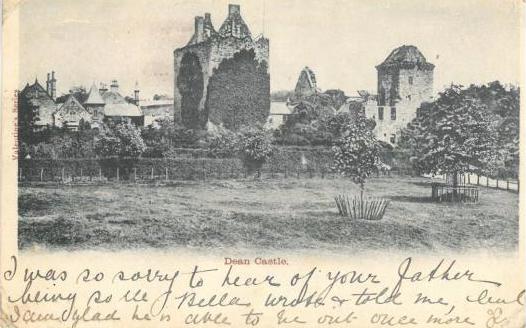 Valentine's Series
Dean Castle.
I was so sorry to hear of your Father
being so ill Bella wrote & told me, but
I am glad he is able to be out once more